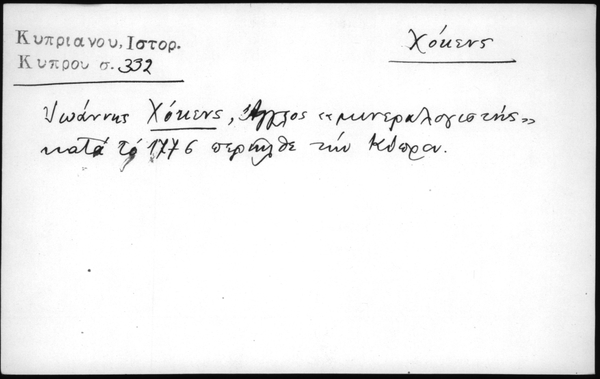 Κυπριανου, Ιστορ.
Κυπρου σ. 332
Χόκενς
Ἰωάννης Χόκενς, Ἄγγλος «μινεραλογιστής»
κατά τό 1776 περιῆλθε τήν Κύπρον.